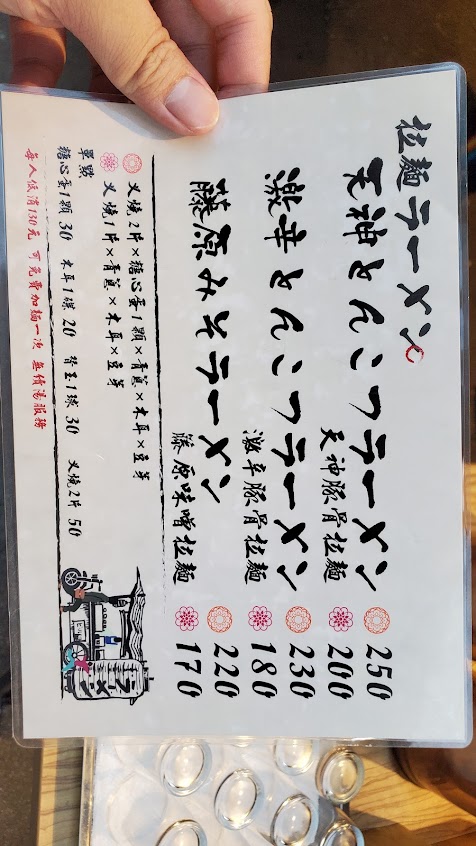 拉麵ラーメン
天神とんこつラーメン
天神豚骨拉麵
250
200
激辛とんこつラーメン
激辛豚骨拉麵
230
180
藤原みそラーメン
藤原味噌拉麵
220
170
叉燒2片×糖心蛋1顆×青蔥×木耳×豆芽
叉燒1片×青蔥×木耳×豆芽
單點
糖心蛋1顆 30 木耳1碟 20 替玉1球 30 叉燒2片 50
每人低消130元 可免費加麵一次 無續湯服務
ラーメン